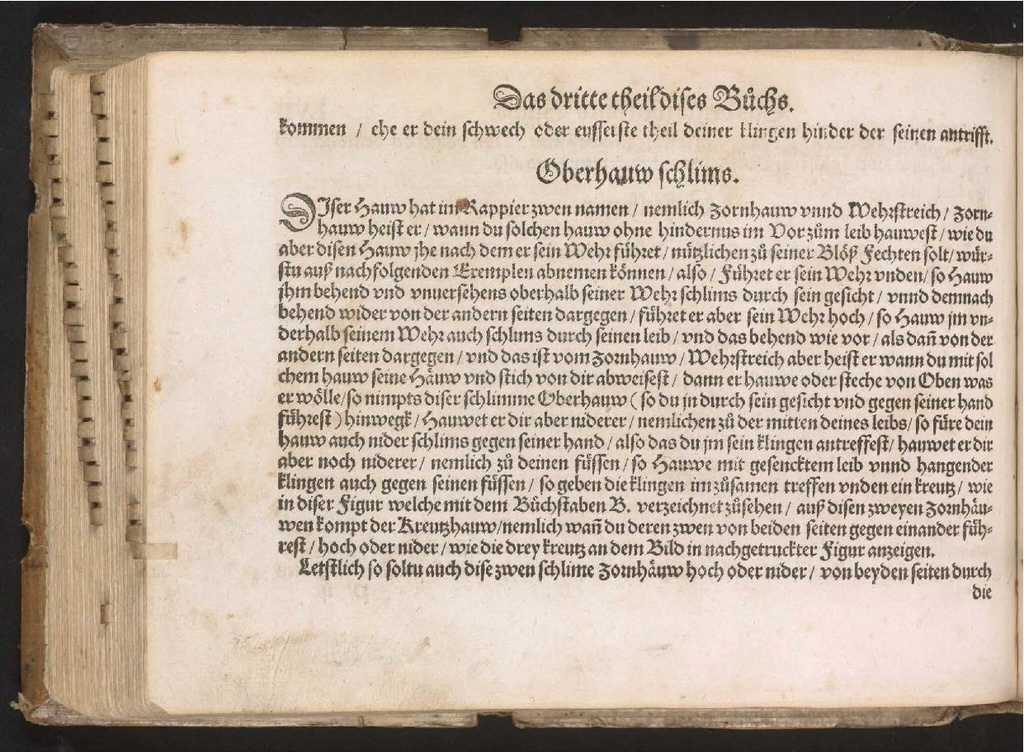 Das dritte theil dises Bůchs.
kommen / ehe er dein schwech oder eusserste theil deiner klingen hinder der seinen antrifft.
Oberhauw schlims.
DJser Hauw hat im Rappier zwen namen / nemlich Zornhauw vnnd Wehrstreich / Zorn-
hauw heist er / wann du solchen hauw ohne hindernus im Vor zům leib hauwest / wie du
aber disen Hauw jhe nach dem er sein Wehr führet / nützlichen zů seiner Blöß Fechten solt / wür-
stu auß nachfolgenden Exemplen abnemen können / also / Führet er sein Wehr vnden / so Hauw
jhm behend vnd vnuersehens oberhalb seiner Wehr schlims durch sein gesicht / vnnd demnach
behend wider von der andern seiten dargegen / führet er aber sein Wehr hoch / so Hauw jm vn-
derhalb seinem Wehr auch schlims durch seinen leib / vnd das behend wie vor / als dañ von der
andern seiten dargegen / vnd das ist vom Zornhauw / Wehrstreich aber heist er wann du mit sol
chem hauw seine Häuw vnd stich von dir abweisest / dann er hauwe oder steche von Oben was
er wölle / so nimpts diser schlimme Oberhauw ( so du jn durch sein gesicht vnd gegen seiner hand
führest ) hinwegk / Hauwet er dir aber niderer / nemlichen zů der mitten deines leibs / so füre dein
hauw auch nider schlims gegen seiner hand / also das du jm sein klingen antreffest / hauwet er dir
aber noch niderer / nemlich zů deinen füssen / so Hauwe mit gesencktem leib vnnd hangender
klingen auch gegen seinen füssen / so geben die klingen im zůsamen treffen vnden ein kreutz / wie
in diser Figur welche mit dem Bůchstaben B. verzeichnet zůsehen / auß disen zweyen Zornhäu-
wen kompt der Kreutzhauw / nemlich wañ du deren zwen von beiden seiten gegen einander füh-
rest / hoch oder nider / wie die drey kreutz an dem Bild in nachgetruckter Figur anzeigen.
Letstlich so soltu auch dise zwen schlime Zornhäuw hoch oder nider / von beyden seiten durch
die